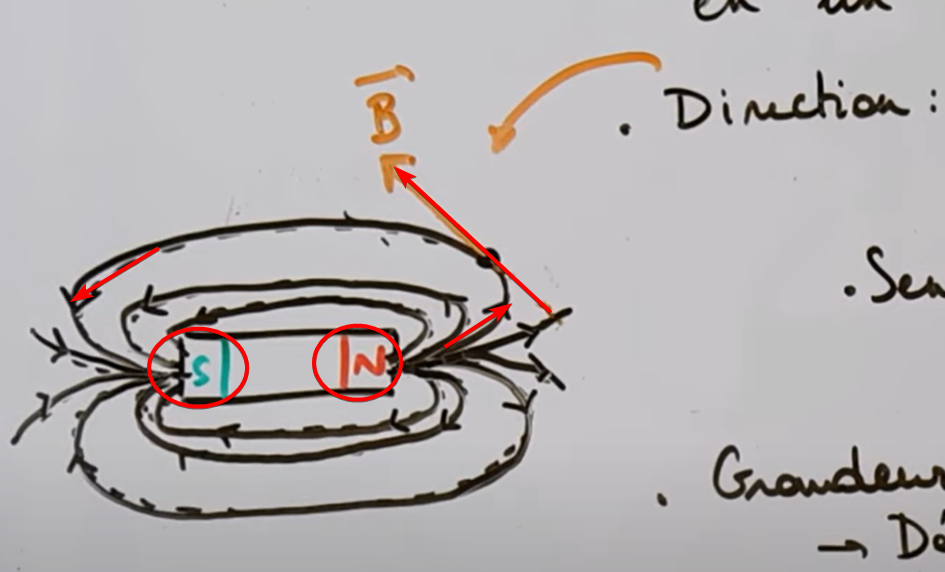 en un
B
. Direction :
S N
. Sen
. Grandeur
→ Dé